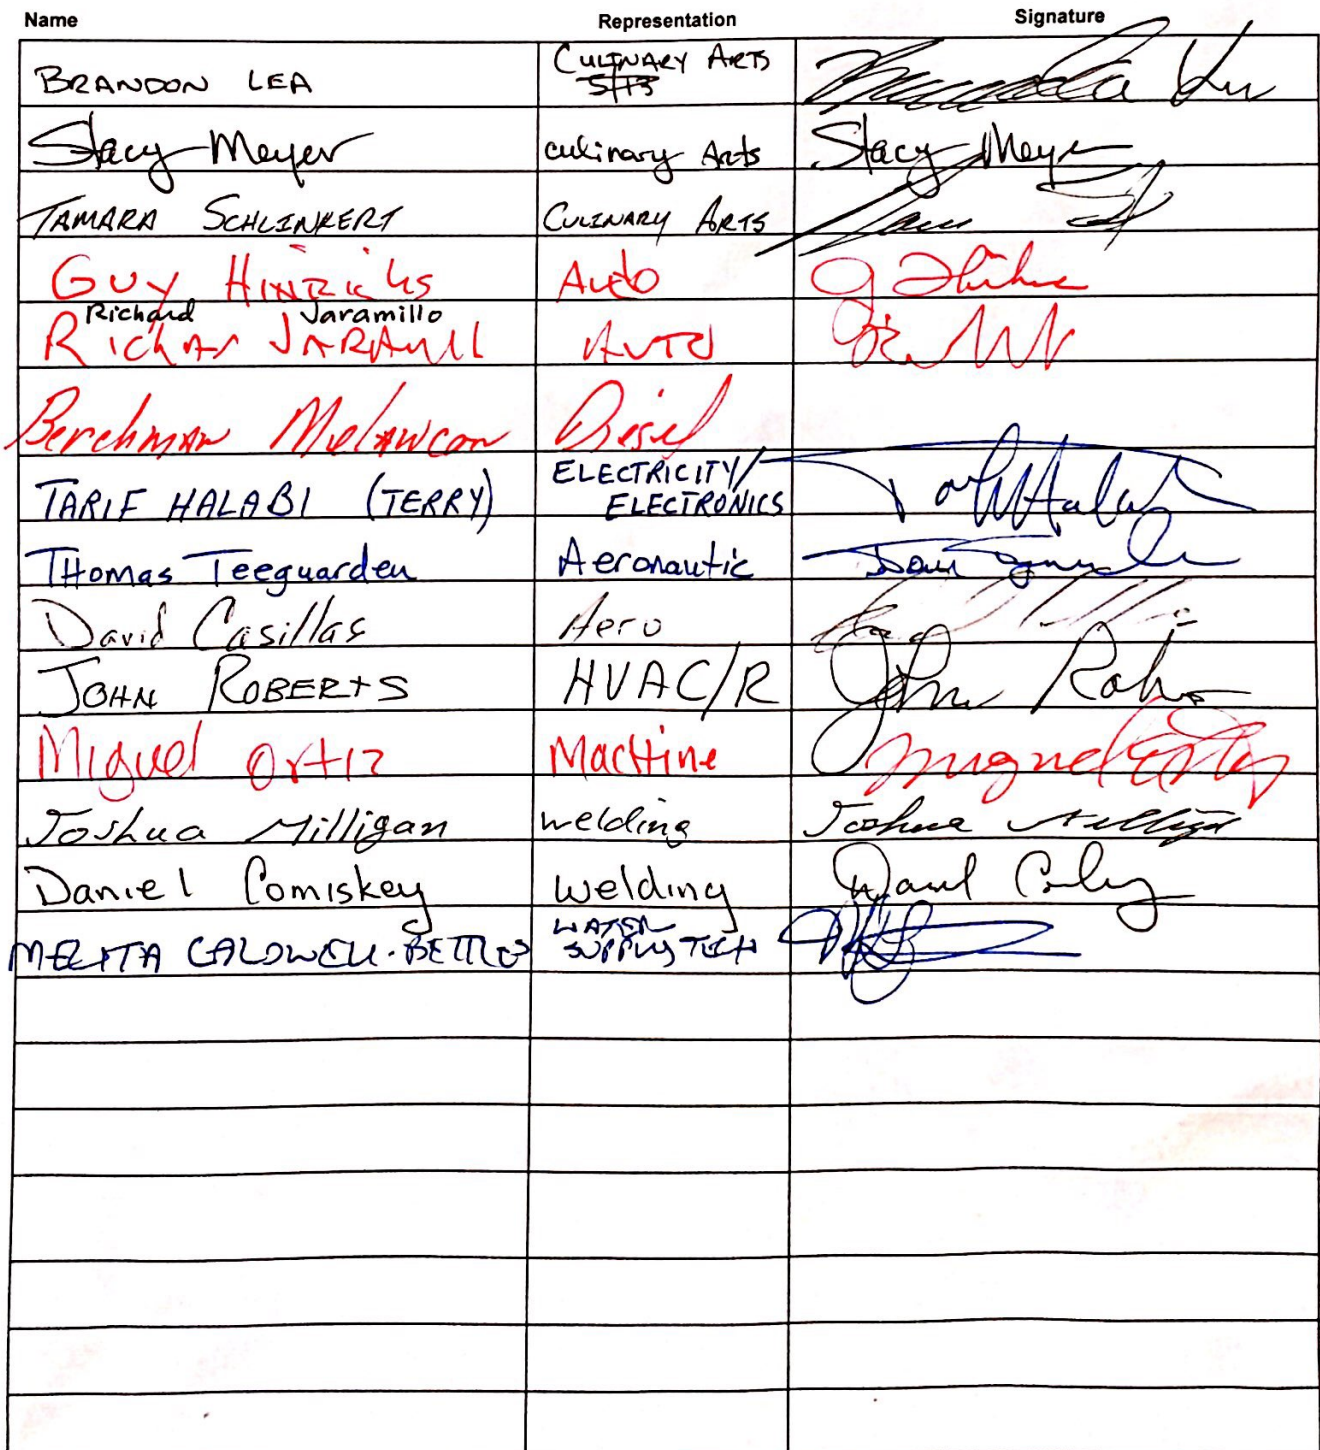 Name Representation Signature
BRANDON LEA CULINARY ARTS
5/13
Stacy Meyer culinary Arts Stacy Meyer
TAMARA SCHLINKERT CULINARY ARTS
GUY HINRICHS Auto
Richard Jaramillo
RICHAR JARAMILL AUTO
Berchman Melancon Diesel
TARIF HALABI (TERRY) ELECTRICITY/
ELECTRONICS
THomas Teeguarden Aeronautic
David Casillas Aero
JOHN ROBERTS HVAC/R John
Miguel Ortiz MacHine Miguel
Joshua Milligan welding Joshua Milligan
Daniel Comiskey welding
MELITA CALDWELL-BETTIES WATER
SUPPLY TECH